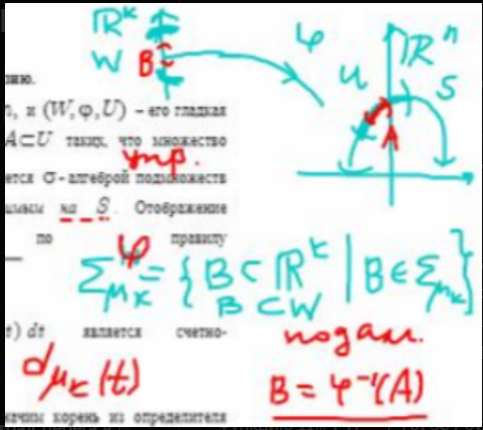 ℝᵏ
W B
φ
ℝⁿ
U S
A
и (W, φ, U) – его гладкая
A⊂U таких, что множество
упр.
ется σ-алгеброй подмножеств
на S. Отображение
по φ правилу
Σ_μₖ = { B ⊂ ℝᵏ | B ∈ Σ_μₖ }
B ⊂ W
t) dt является счетно-
dμₖ(t)
B = φ⁻¹(A)
корень из определителя